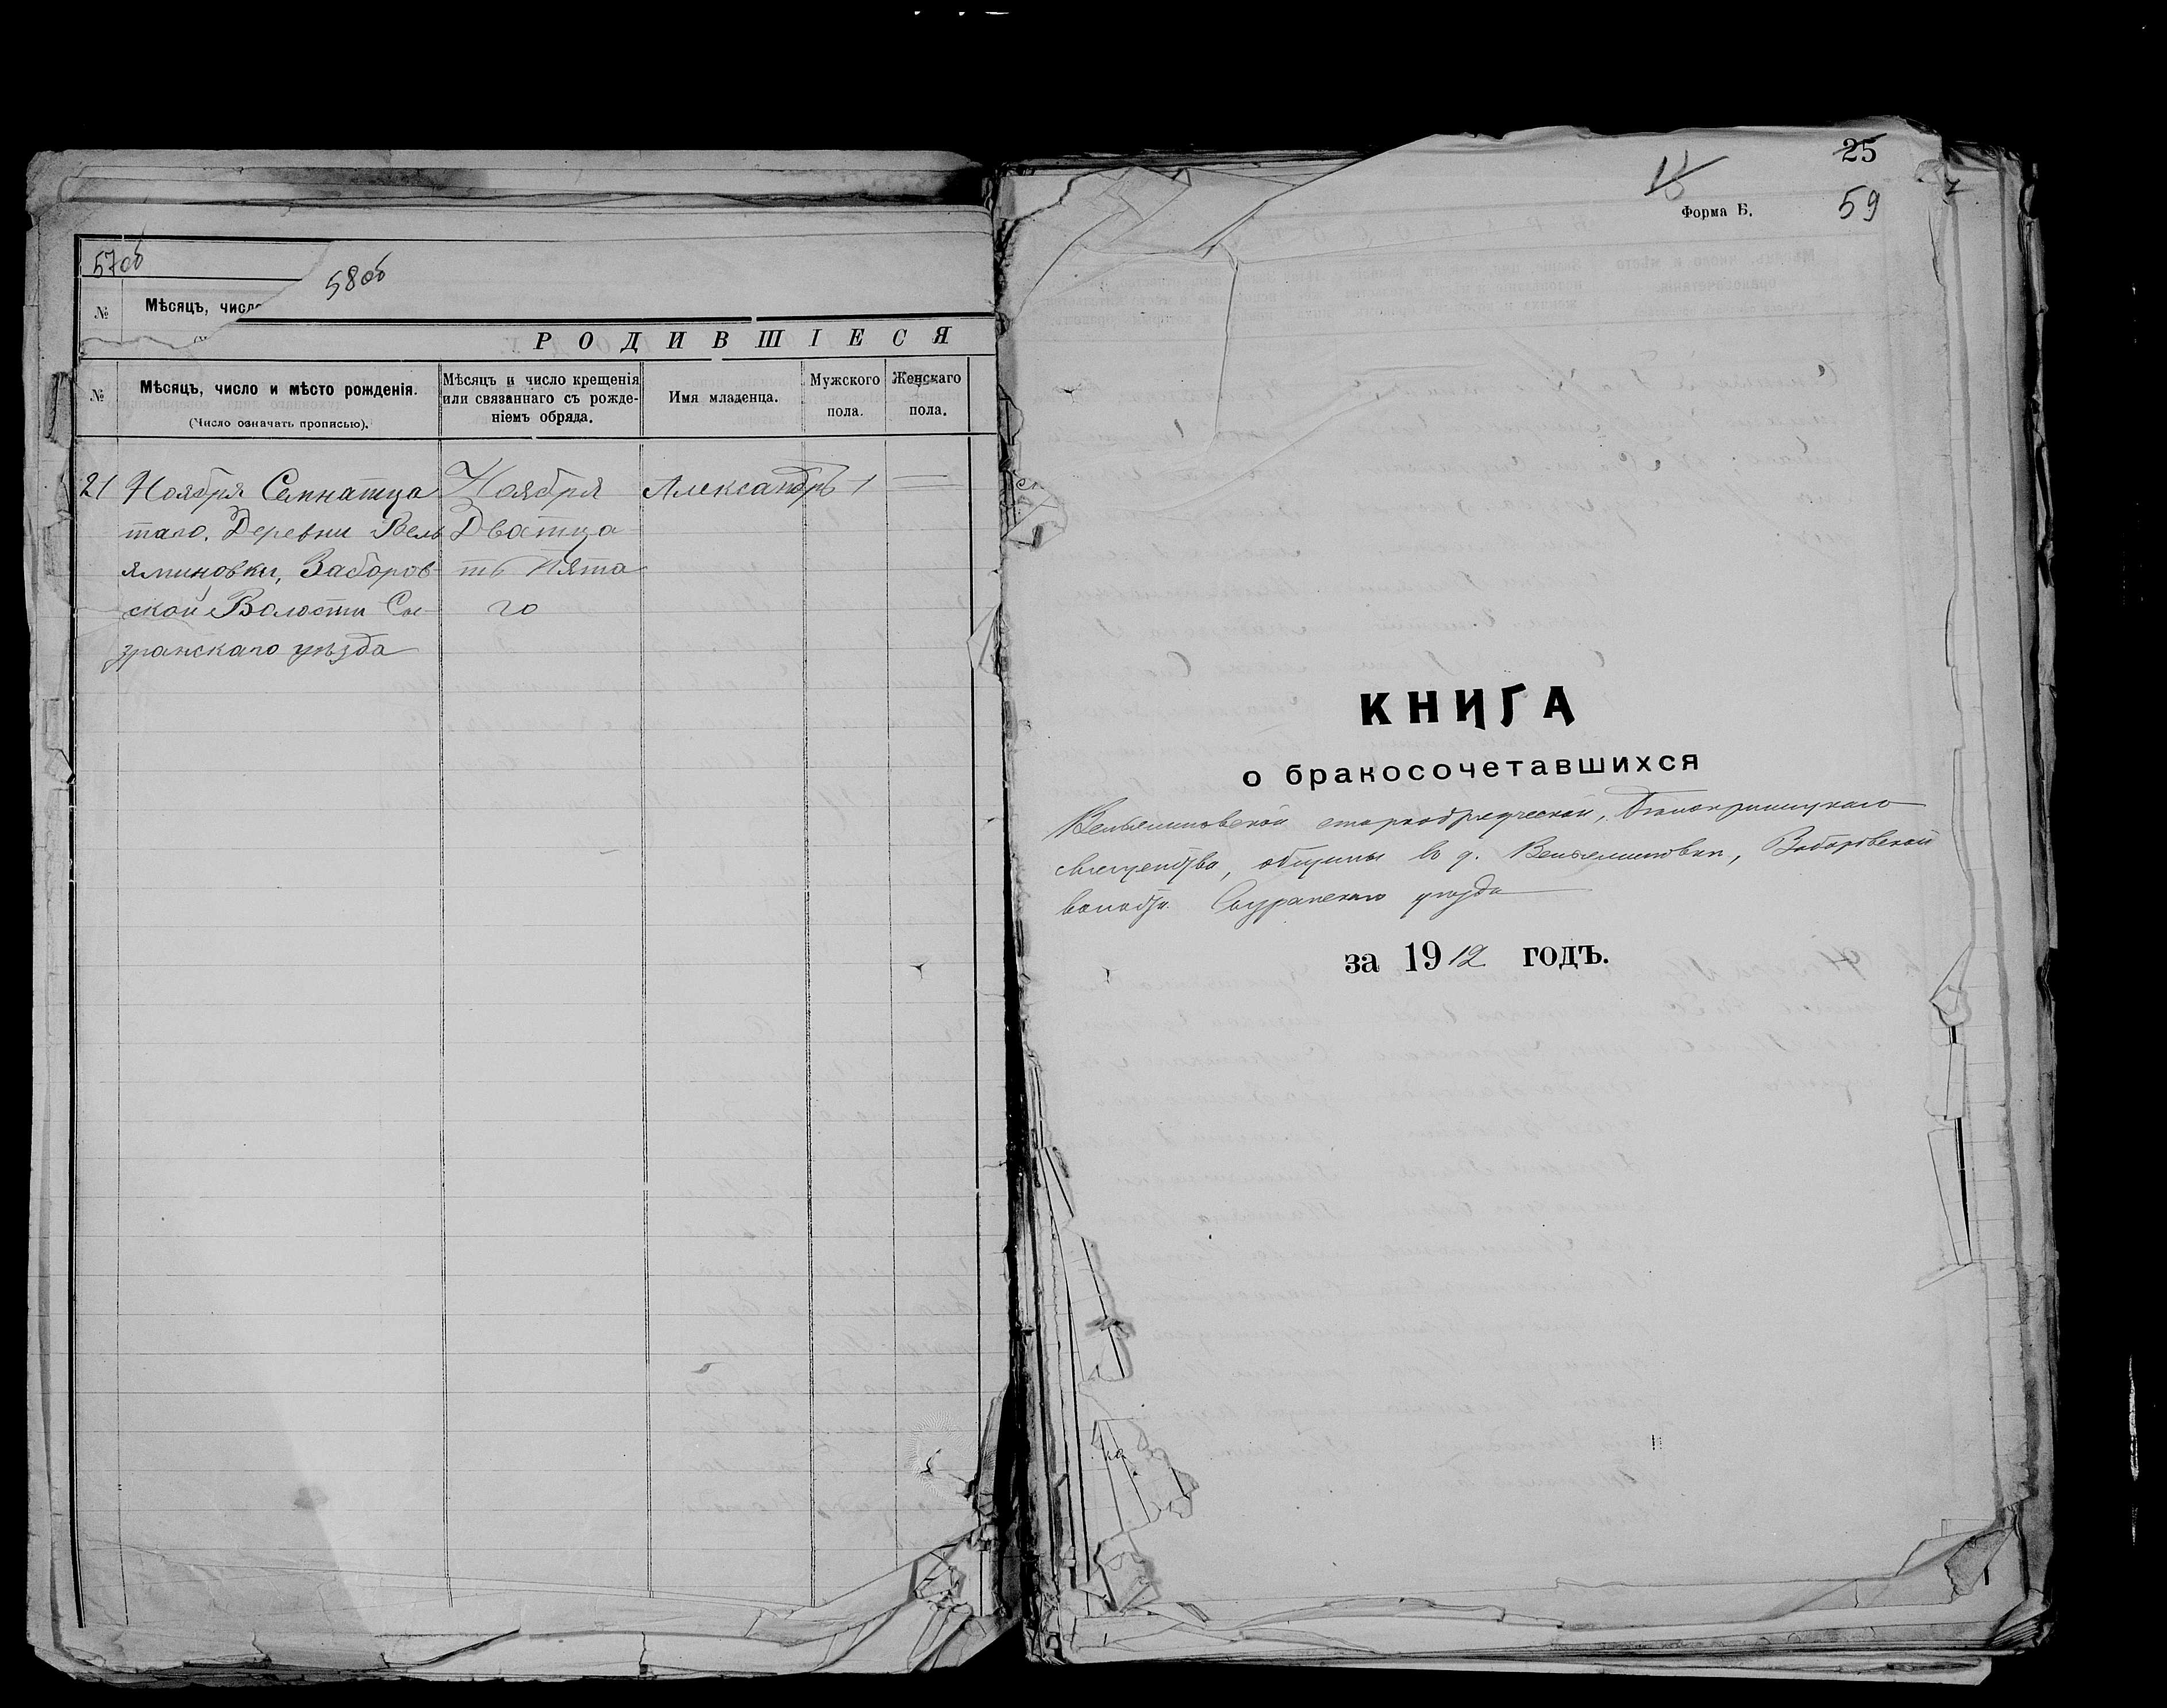 57об
58об
№ Мѣсяцъ, число
РОДИВШІЕСЯ
№ Мѣсяцъ, число и мѣсто рожденія.
(Число означать прописью).
Мѣсяцъ и число крещенія
или связаннаго съ рожде-
ніемъ обряда.
Имя младенца.
Мужского
пола.
Женскаго
пола.
21 Ноября Семнатца Ноября Александръ 1
таго. Деревни Вель Дватца
яминовки, Заборов- ть Пята
ской Волости Сы- го
зранскаго уѣзда
25
59
Форма Б.
КНИГА
о бракосочетавшихся
Вельяминовской старообрядческой, Бѣлокриницкаго
священства, общины въ д. Вельяминовки, Заборовской
волости Сызранскаго уѣзда
за 1912 годъ.